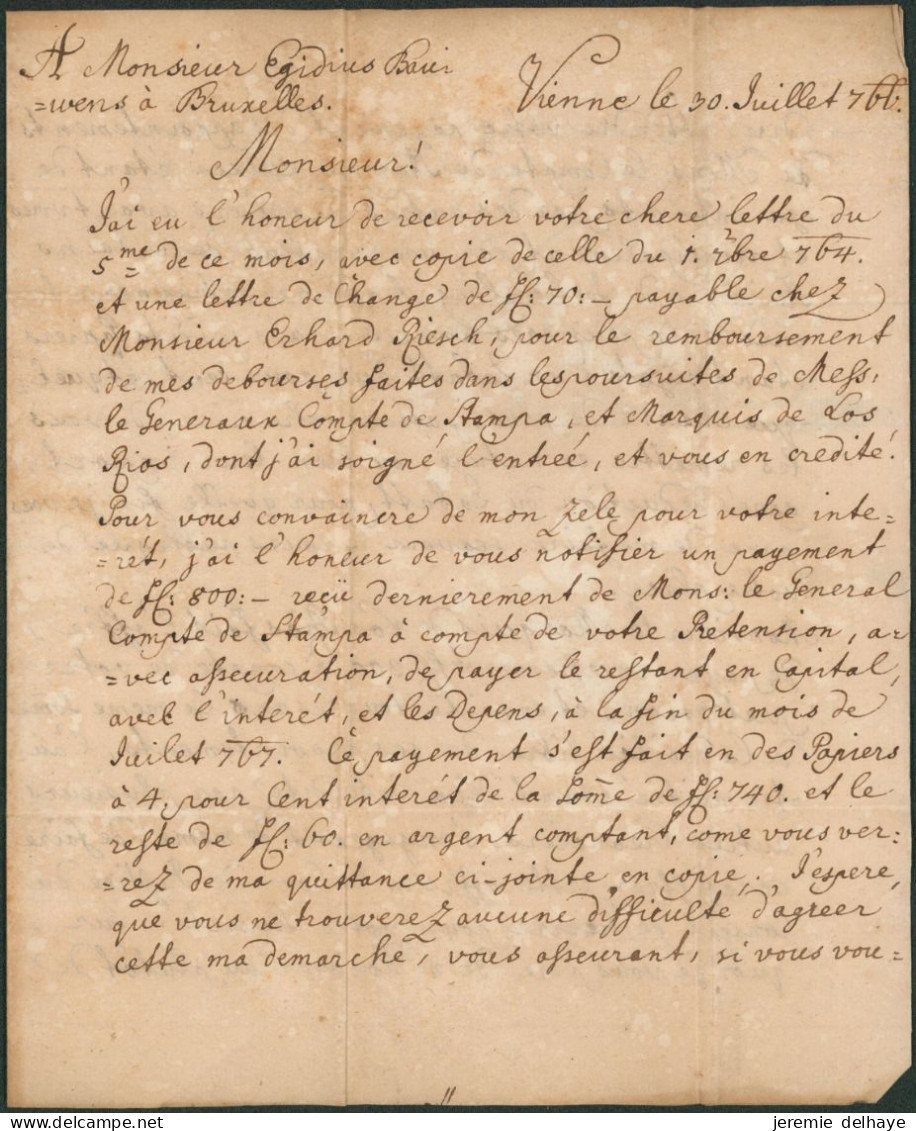 A Monsieur Egidius Baui
=wens à Bruxelles.
Vienne le 30. Juillet 766.
Monsieur!
J'ai eu l'honeur de recevoir votre chere lettre du
5me de ce mois, avec copie de celle du 1. 2bre 764.
et une lettre de Change de fl: 70:— payable chez
Monsieur Erhard Riesch, pour le remboursement
de mes debourses faites dans les poursuites de Mess:
le Generaux Compte de Stampa, et Marquis de Los
Rios, dont j'ai soigné l'entreé, et vous en credité.
Pour vous convaincre de mon zele pour votre inte=
=rét, j'ai l'honeur de vous notifier un payement
de fl: 800:— reçü dernierement de Mons: le General
Compte de Stampa à compte de votre Retension, a=
=vec asseuration, de payer le restant en Capital,
avec l'interét, et les Depens, à la fin du mois de
Juilet 767. Cè payement s'est fait en des Papiers
à 4. pour Cent interét de la Som̄e de fl: 740. et le
reste de fl: 60. en argent comptant, come vous ver=
=rez de ma quittance ci-jointe en copie. J'espere,
que vous ne trouverez aucune difficulté d'agreer
cette ma demarche, vous asseurant, si vous vou=
jeremie delhaye